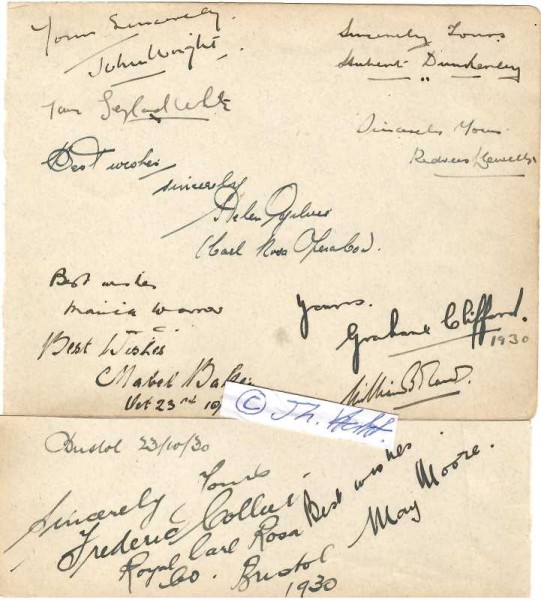 Yours Sincerely
John Wright.
Sincerely Yours
Hubert Dunkerley
Sincerely Yours
Redvers Llewellyn
Best wishes
sincerely
Helen Ogilvie
(Carl Rosa Opera Co).
Best wishes
Yours.
Graham Clifford.
1930
Best Wishes
Mabel
Oct 23rd 19
© Th. Kraft.
Bristol 23/10/30
Yours
Sincerely
Frederic Collier
Royal Carl Rosa
Co. Bristol
1930
Best wishes
May Moore.